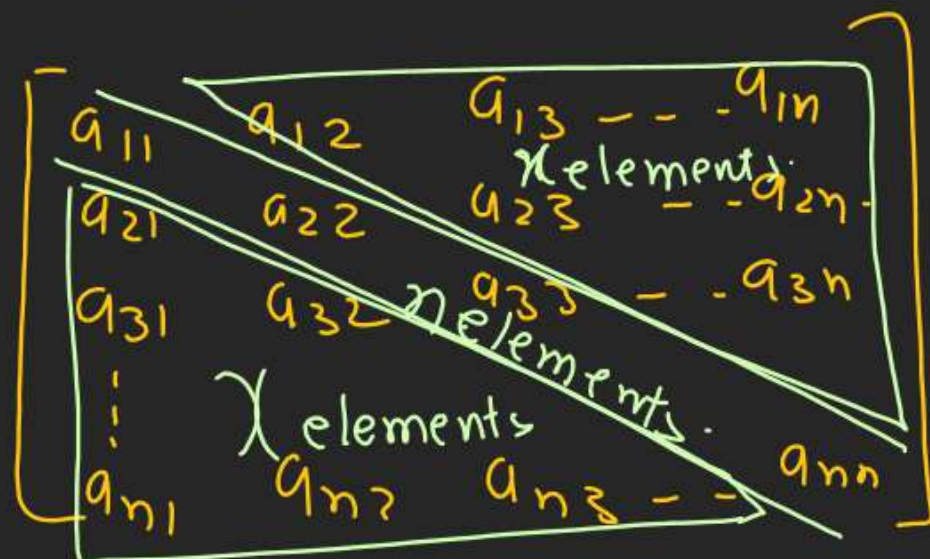 a11 a12 a13 - - - a1n
x elements.
a21 a22 a23 - - - a2n.
a31 a32 a33 - - - a3n
n elements.
x elements
an1 an2 an3 - - - ann